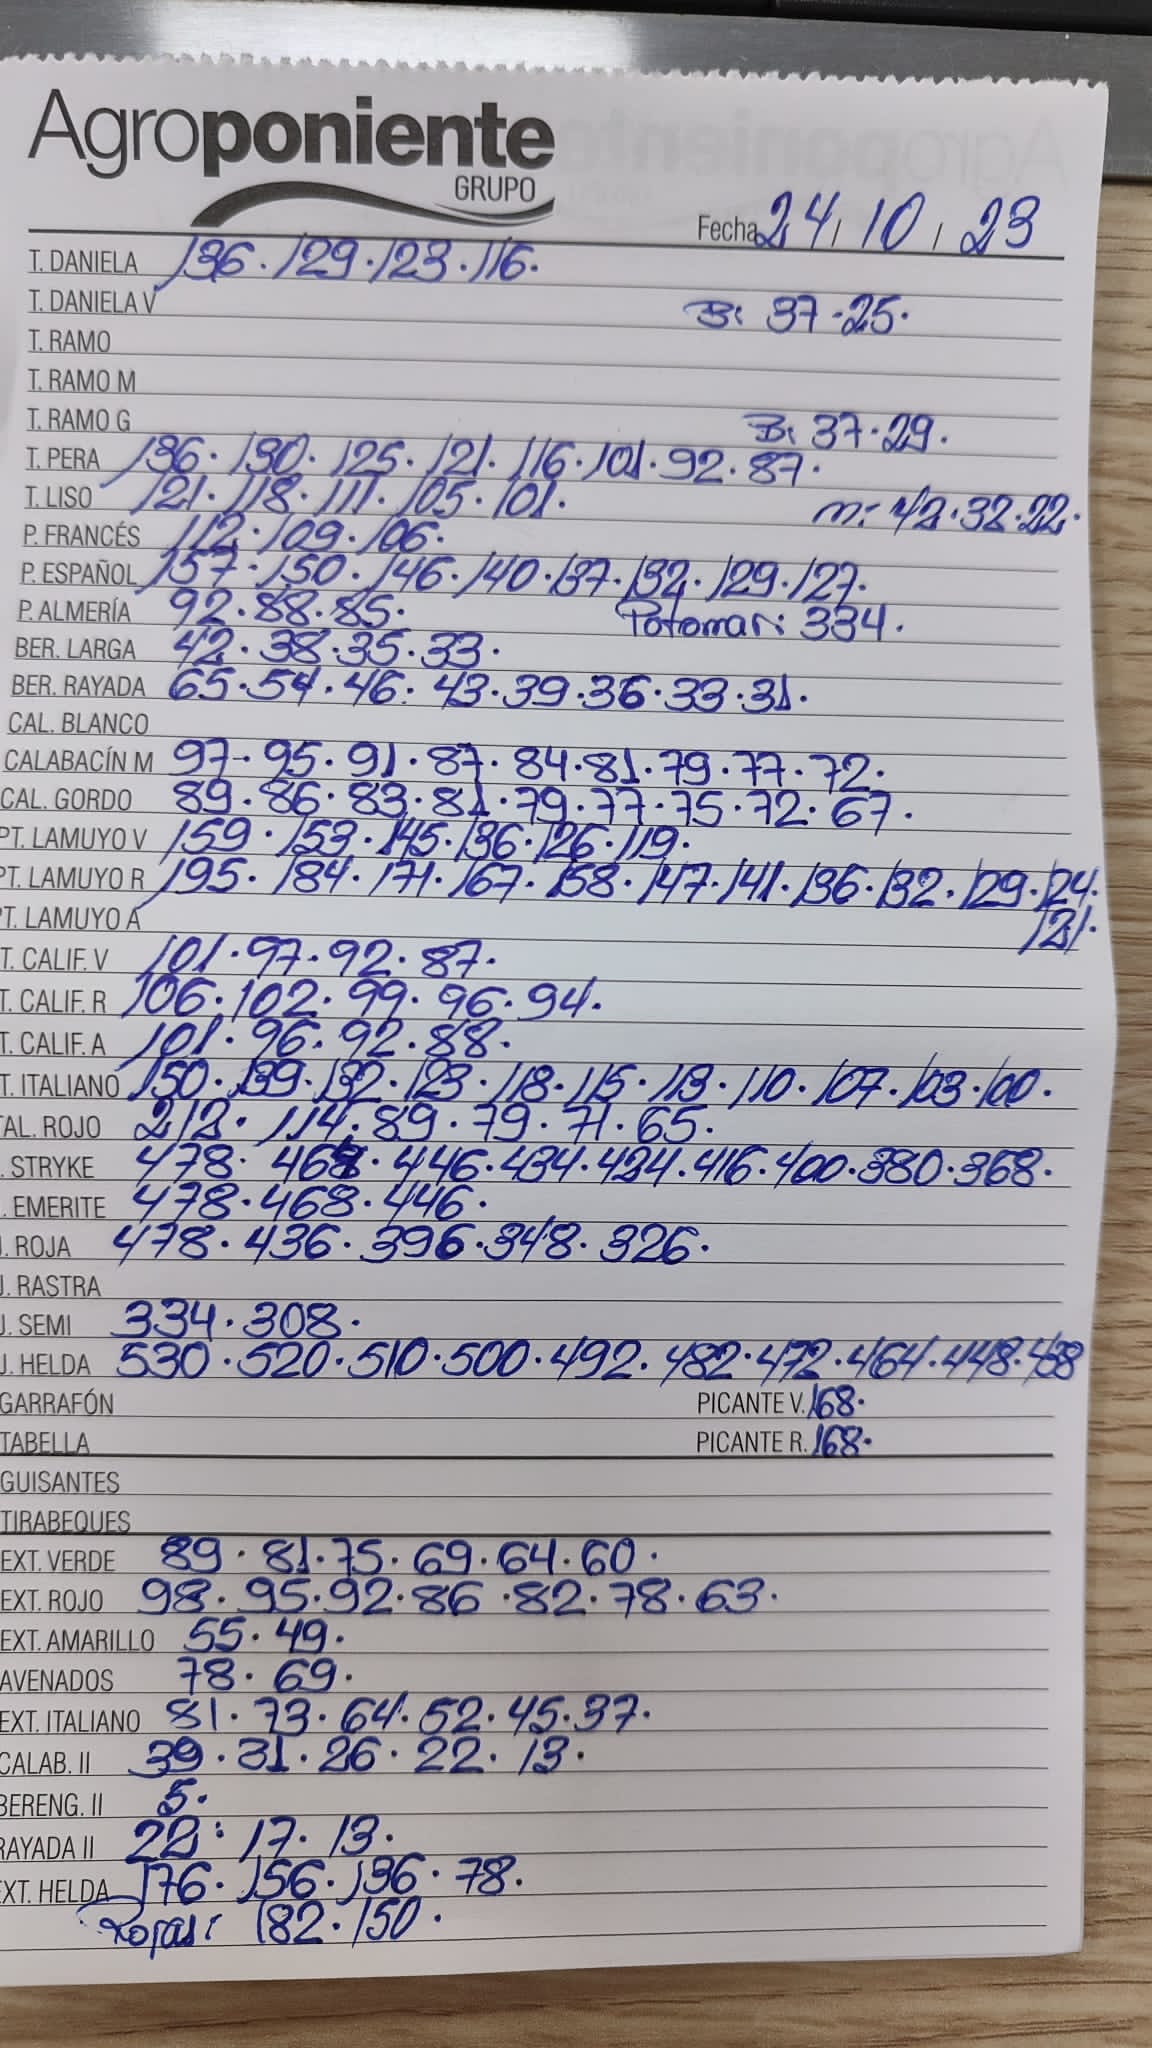 Agroponiente
GRUPO
Fecha 24 / 10 / 23
T. DANIELA 136 · 129 · 123 · 116 ·
T. DANIELA V B: 37 · 25 ·
T. RAMO
T. RAMO M
T. RAMO G B: 37 · 29 ·
T. PERA 136 · 130 · 125 · 121 · 116 · 101 · 92 · 87 ·
T. LISO 121 · 118 · 111 · 105 · 101 · m: 42 · 32 · 22 ·
P. FRANCÉS 112 · 109 · 106 ·
P. ESPAÑOL 157 · 150 · 146 · 140 · 137 · 132 · 129 · 127 ·
P. ALMERÍA 92 · 88 · 85 · Potomar: 334 ·
BER. LARGA 42 · 38 · 35 · 33 ·
BER. RAYADA 65 · 54 · 46 · 43 · 39 · 36 · 33 · 31 ·
CAL. BLANCO
CALABACÍN M 97 · 95 · 91 · 87 · 84 · 81 · 79 · 77 · 72 ·
CAL. GORDO 89 · 86 · 83 · 81 · 79 · 77 · 75 · 72 · 67 ·
PT. LAMUYO V 159 · 153 · 145 · 136 · 126 · 119 ·
PT. LAMUYO R 195 · 184 · 171 · 167 · 158 · 147 · 141 · 136 · 132 · 129 · 124 ·
PT. LAMUYO A 121 ·
T. CALIF. V 101 · 97 · 92 · 87 ·
T. CALIF. R 106 · 102 · 99 · 96 · 94 ·
T. CALIF. A 101 · 96 · 92 · 88 ·
T. ITALIANO 150 · 139 · 132 · 123 · 118 · 115 · 113 · 110 · 107 · 103 · 100 ·
AL. ROJO 212 · 114 · 89 · 79 · 71 · 65 ·
. STRYKE 478 · 468 · 446 · 434 · 424 · 416 · 400 · 380 · 368 ·
. EMERITE 478 · 468 · 446 ·
J. ROJA 478 · 436 · 396 · 348 · 326 ·
J. RASTRA
J. SEMI 334 · 308 ·
J. HELDA 530 · 520 · 510 · 500 · 492 · 482 · 472 · 464 · 448 · 438
GARRAFÓN PICANTE V. 168 ·
TABELLA PICANTE R. 168 ·
GUISANTES
TIRABEQUES
EXT. VERDE 89 · 81 · 75 · 69 · 64 · 60 ·
EXT. ROJO 98 · 95 · 92 · 86 · 82 · 78 · 63 ·
EXT. AMARILLO 55 · 49 ·
AVENADOS 78 · 69 ·
EXT. ITALIANO 81 · 73 · 64 · 52 · 45 · 37 ·
CALAB. II 39 · 31 · 26 · 22 · 13 ·
BERENG. II 5 ·
RAYADA II 22 · 17 · 13 ·
EXT. HELDA 176 · 156 · 136 · 78 ·
Rojas: 182 · 150 ·